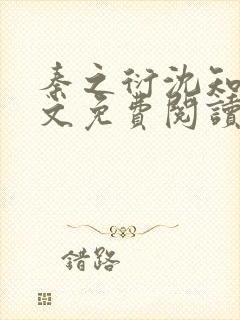 秦之衍沈知
文免費閱讀
錯路